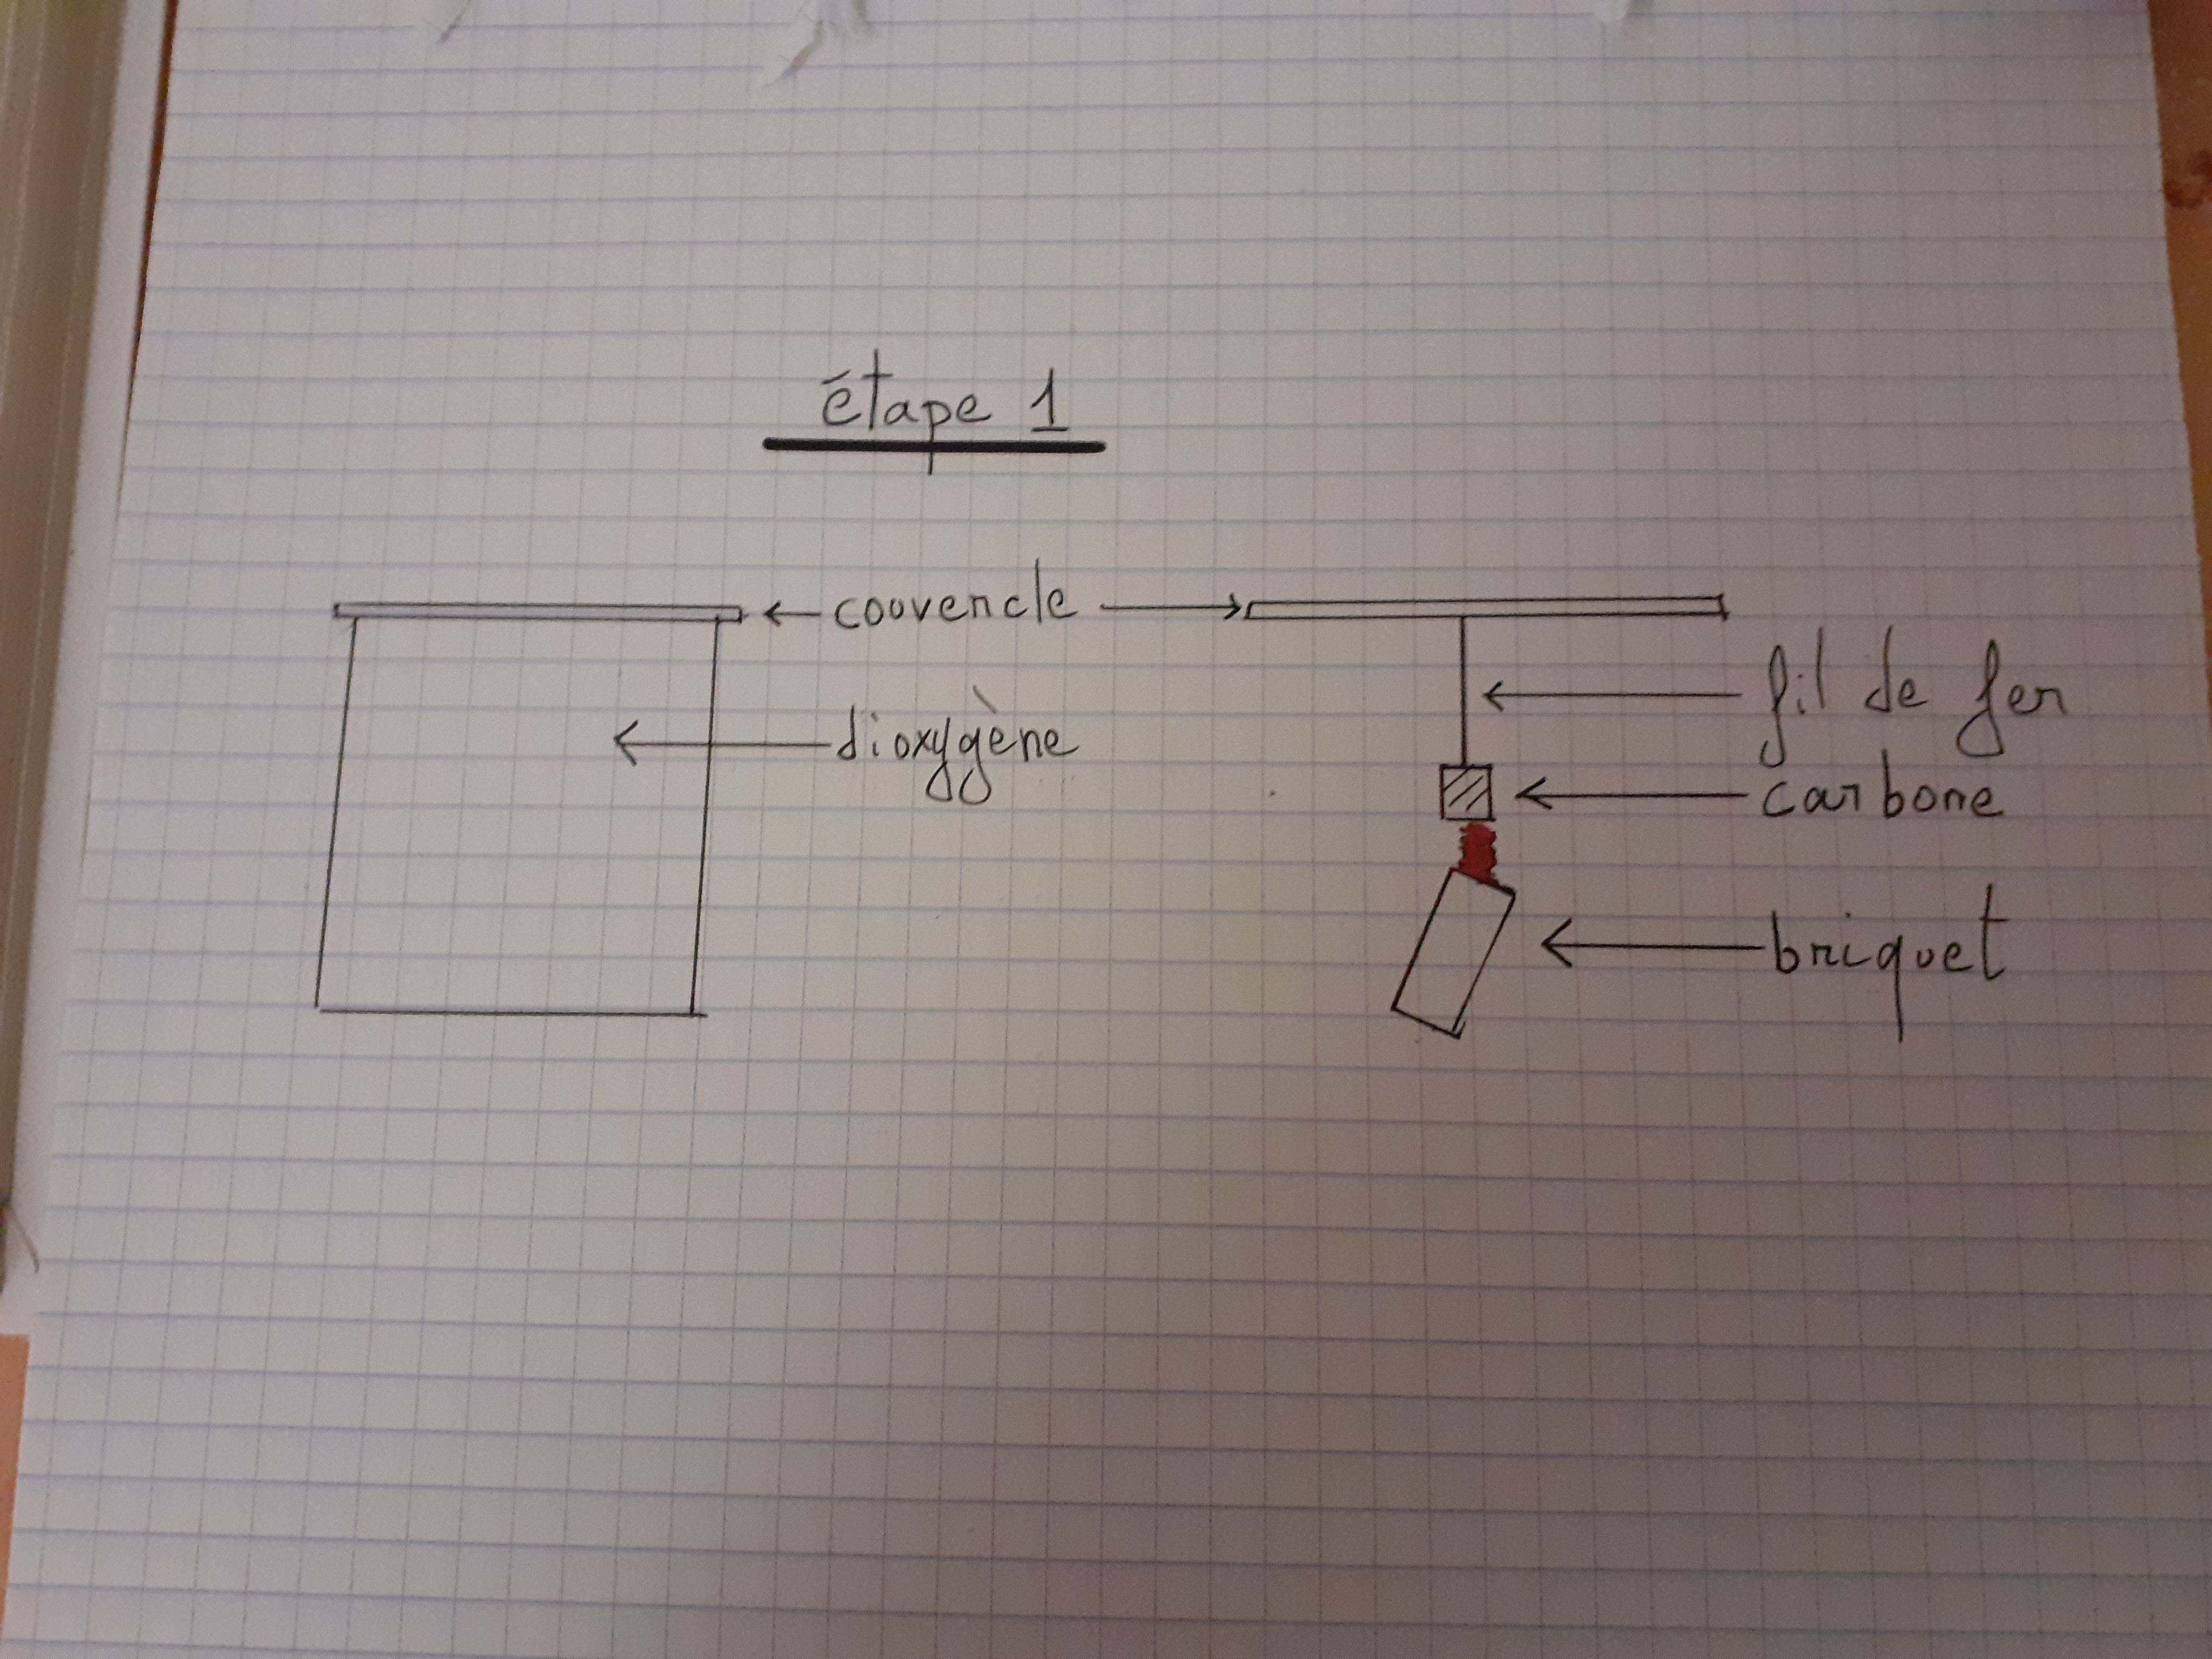 étape 1
couvercle
dioxygène
fil de fer
carbone
briquet